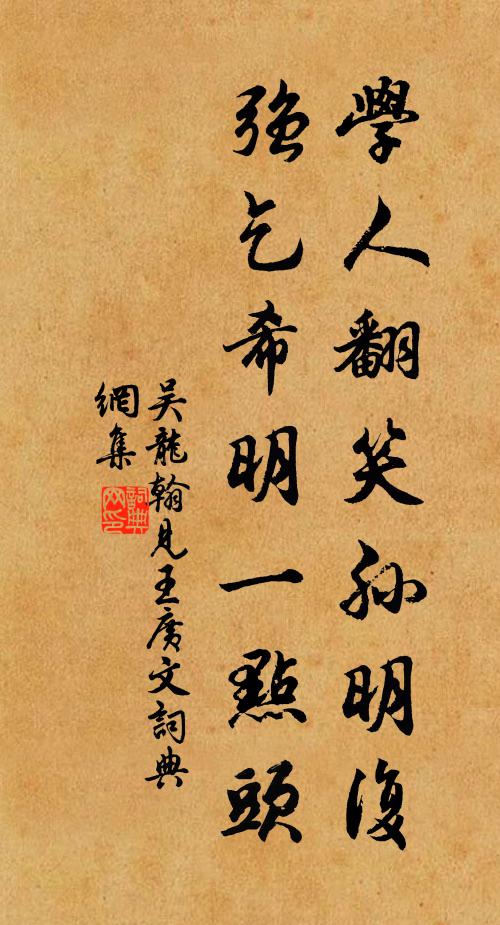 學人翻笑孙明復
强乞希明一點頭
吴龍翰見王廣文詞典
網集
詞典
网印